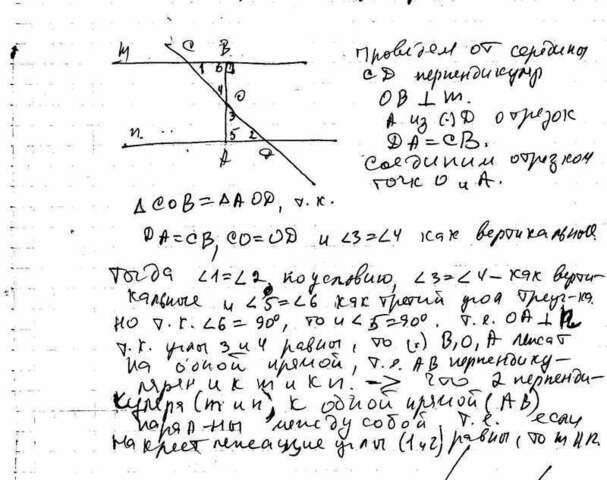 m
C
B
1
6
4
O
3
n
5
2
A
D
Проведем от середины
CD перпендикуляр
OB ⊥ m.
А из (·) D отрезок
DA = CB.
Соединим отрезком
точк O и A.
Δ COB = Δ AOD, т.к.
DA = CB, CO = OD и ∠3 = ∠4 как вертикальные
Тогда ∠1 = ∠2 по условию, ∠3 = ∠4 – как верти-
кальные и ∠5 = ∠6 как третий угол треуг-ка.
но т.к. ∠6 = 90°, то и ∠5 = 90°. т.е. OA ⊥ n
т.к. углы 3 и 4 равны, то (·) B, O, A лежат
на одной прямой, т.е. AB перпендику-
лярен и к m и к n. –> что 2 перпенди-
куляра (m и n) к одной прямой (AB)
парал-ны между собой, т.е. если
накрест лежащие углы (1 и 2) равны, то m || n.